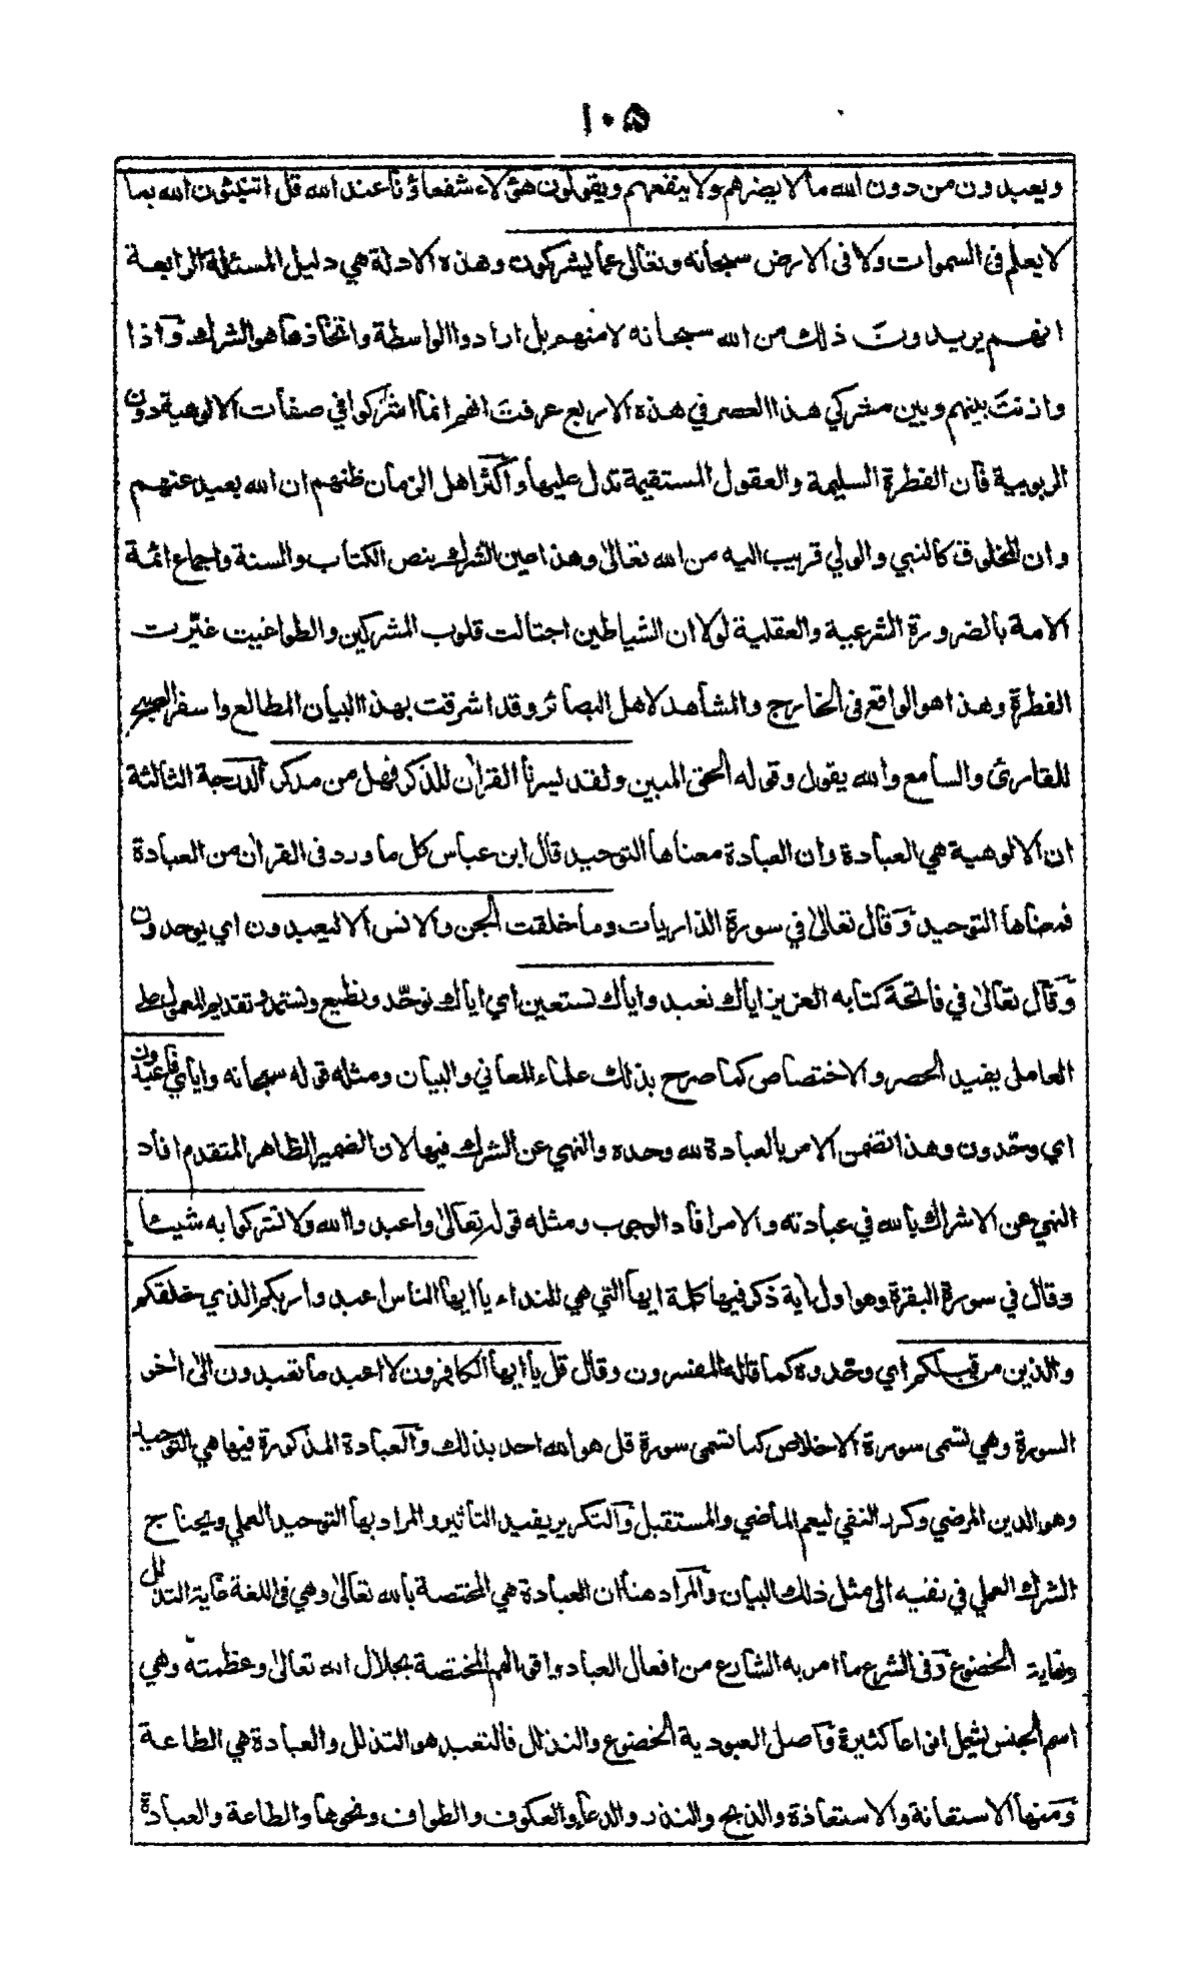 ١٠٥
ويعبدون من دون الله ما لا يضرهم ولا ينفعهم ويقولون هؤلاء شفعاؤنا عند الله قل اتنبئون الله بما
لا يعلم في السموات ولا في الارض سبحانه وتعالى عما يشركون وهذه الادلة هي دليل المسئلة الرابعة
انهم يريدون ذلك من الله سبحانه لا منهم بل ارادوا الواسطة واتخاذها هو الشرك واذا
وازنت بينهم وبين مشركي هذا العصر في هذه الاربع عرفت انهم انما اشركوا في صفات الالوهية دون
الربوبية فان الفطرة السليمة والعقول المستقيمة تدل عليها واكثر اهل الزمان ظنهم ان الله بعيد عنهم
وان المخلوق كالنبي والولي قريب اليه من الله تعالى وهذا عين الشرك بنص الكتاب والسنة واجماع ائمة
الامة بالضرورة الشرعية والعقلية لولا ان الشياطين اجتالت قلوب المشركين والطواغيت غيّرت
الفطرة وهذا هو الواقع في الخارج والمشاهد لاهل البصائر وقد اشرقت بهذا البيان المطالع واسفر الصبح
للقارئ والسامع والله يقول وقوله الحق المبين ولقد يسرنا القران للذكر فهل من مدكر الدرجة الثالثة
ان الالوهية هي العبادة وان العبادة معناها التوحيد قال ابن عباس كل ما ورد في القران من العبادة
فمعناها التوحيد وقال تعالى في سورة الذاريات وما خلقت الجن والانس الا ليعبدون اي يوحدون
وقال تعالى في فاتحة كتابه العزيز اياك نعبد واياك نستعين اي اياك نوحّد ونطيع ونستمد وتقديم المعمول على
العامل يفيد الحصر والاختصاص كما صرح بذلك علماء المعاني والبيان ومثله قوله سبحانه واياي فاعبدون
اي وحّدون وهذا تضمن الامر بالعبادة لله وحده والنهي عن الشرك فيها لان الضمير الظاهر المتقدم افاد
النهي عن الاشراك بالله في عبادته والامر افاد الوجوب ومثله قوله تعالى واعبدوا الله ولا تشركوا به شيئا
وقال في سورة البقرة وهو اول اية ذكر فيها كلمة ايها التي هي للنداء يا ايها الناس اعبدوا ربكم الذي خلقكم
والذين من قبلكم اي وحّدوه كما قاله المفسرون وقال قل يا ايها الكافرون لا اعبد ما تعبدون الى اخر
السورة وهي تسمى سورة الاخلاص كما تسمى سورة قل هو الله احد بذلك والعبادة المذكورة فيها هي التوحيد
وهو الدين المرضي وكرر النفي ليعم الماضي والمستقبل والتكرير يفيد التاثير والمراد بها التوحيد العملي ويحتاج
الشرك العملي في نفيه الى مثل ذلك البيان والمراد هنا ان العبادة هي المختصة بالله تعالى وهي في اللغة غاية التذلل
وغاية الخضوع وفي الشرع ما امر به الشارع من افعال العباد واقوالهم المختصة بجلال الله تعالى وعظمته وهي
اسم الجنس يشمل انواعا كثيرة واصل العبودية الخضوع والتذلل فالتعبد هو التذلل والعبادة هي الطاعة
ومنها الاستعانة والاستعاذة والذبح والنذر والدعاء والعكوف والطواف ونحوها والطاعة والعبادة